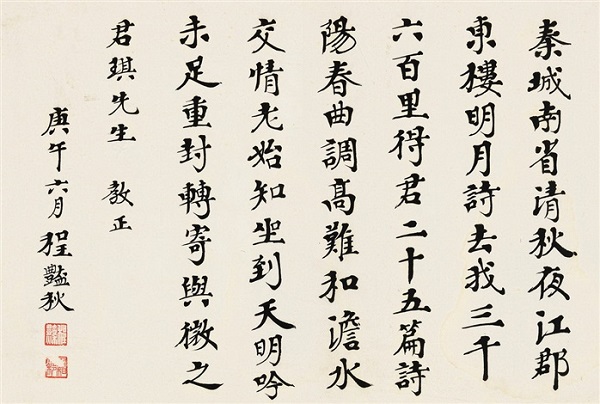 秦城南省清秋夜江郡
東樓明月詩去我三千
六百里得君二十五篇詩
陽春曲調高難和澹水
交情老始知坐到天明吟
未足重封轉寄與微之
君琪先生 教正
庚午六月程豔秋